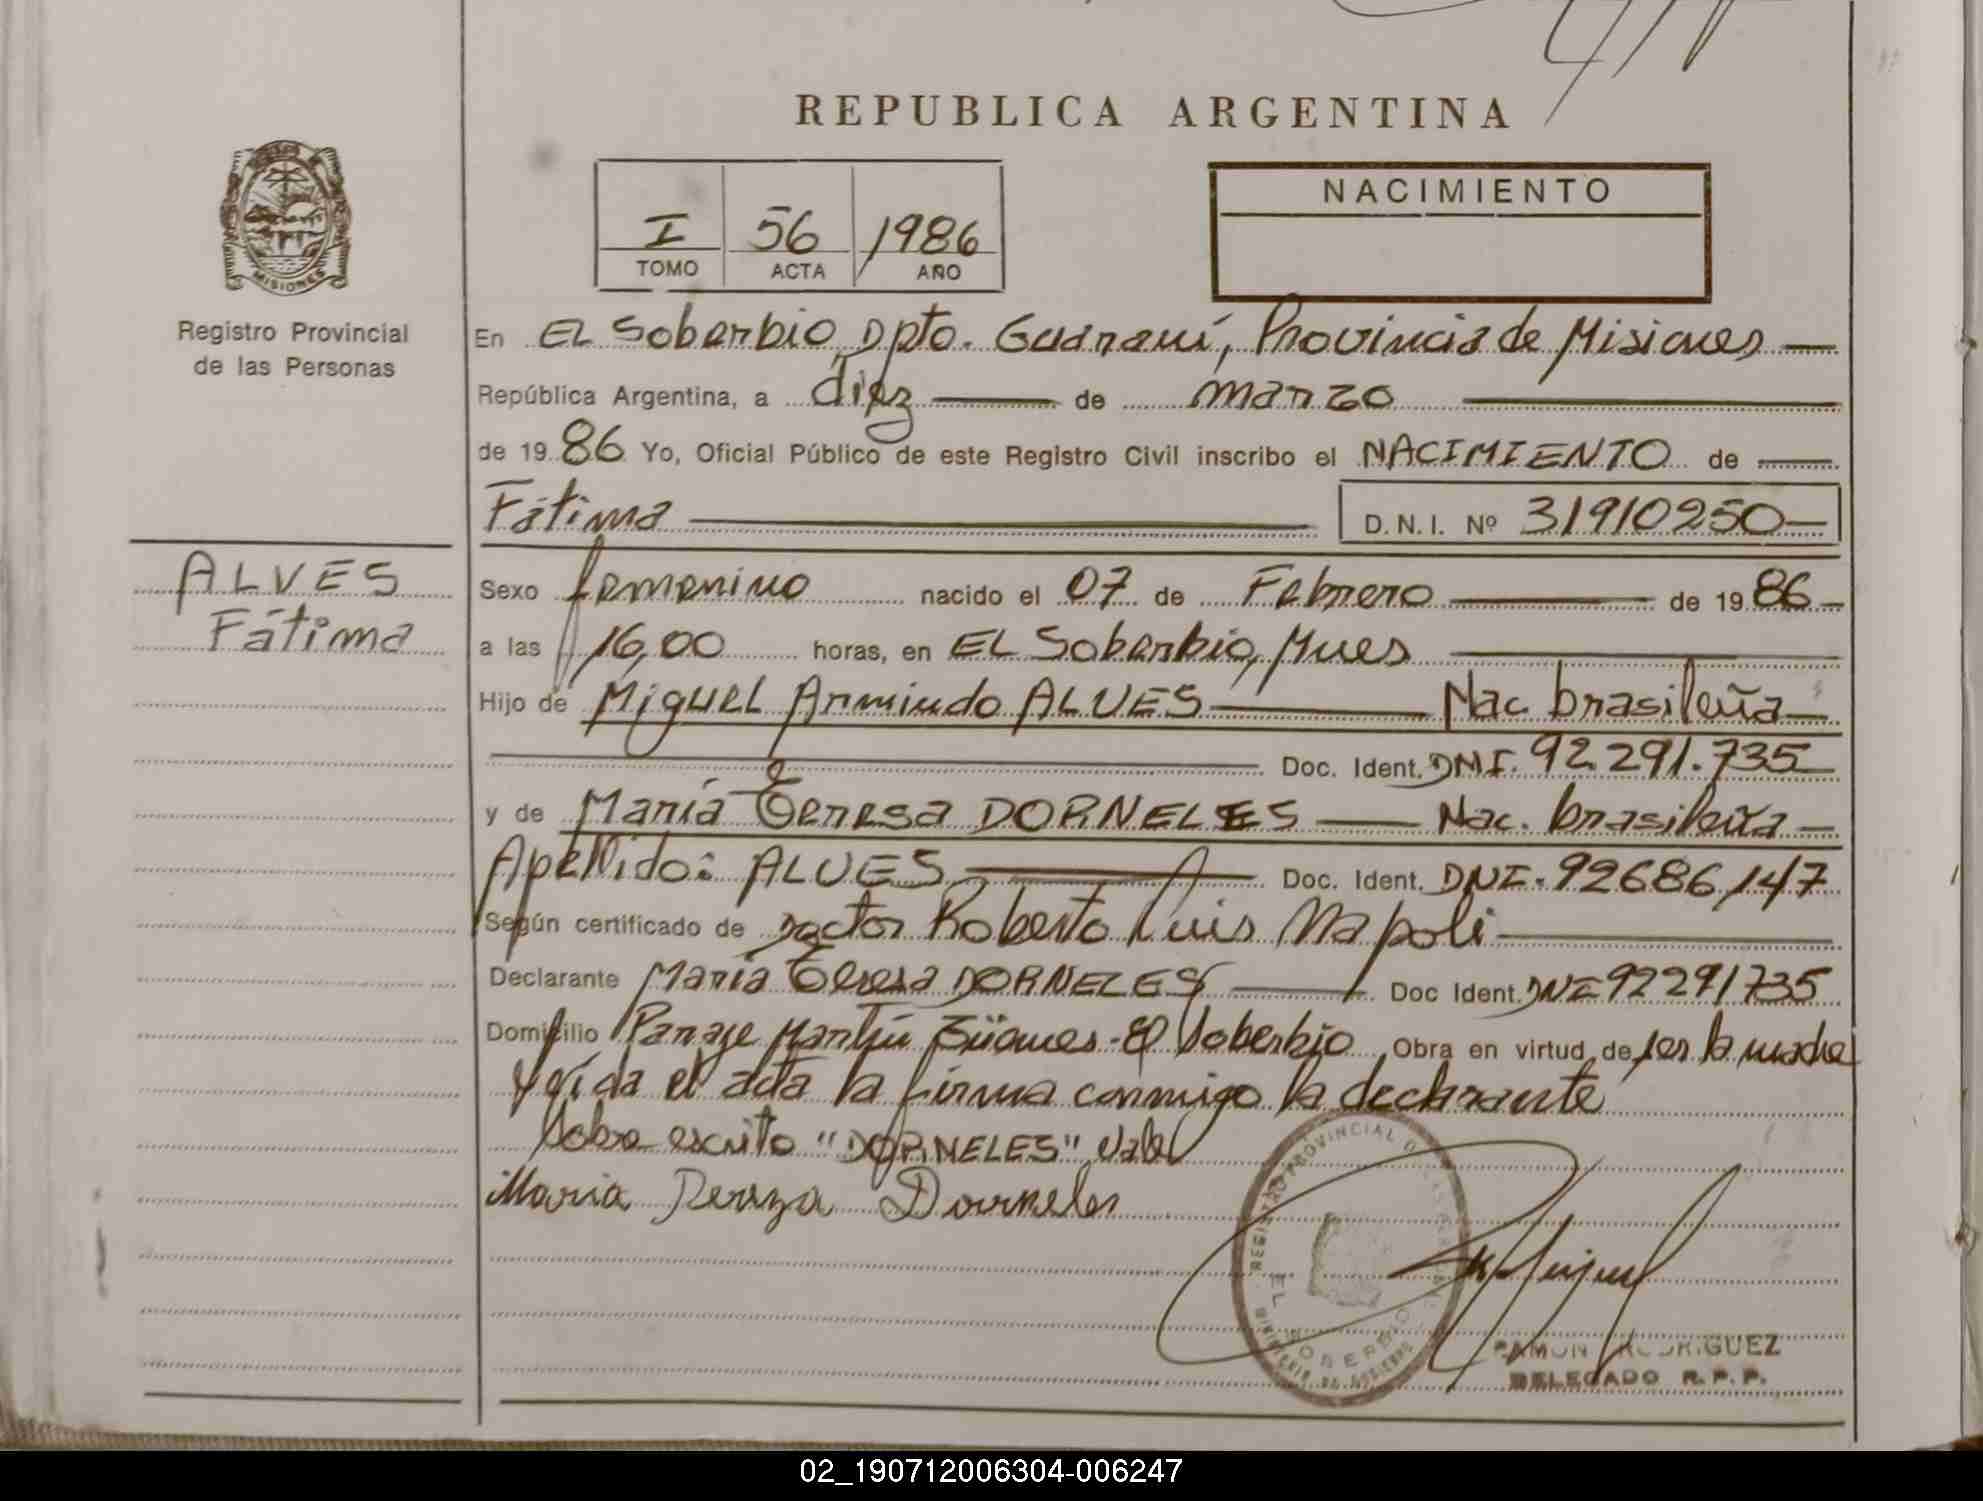 REPUBLICA ARGENTINA
NACIMIENTO
I 56 1986
TOMO ACTA AÑO
MISIONES
Registro Provincial
de las Personas
En EL Soberbio, Dpto. Guaraní, Provincia de Misiones
República Argentina, a diez de marzo
de 1986 Yo, Oficial Público de este Registro Civil inscribo el NACIMIENTO de
Fátima D.N.I. Nº 31910250
ALVES
Fátima
Sexo femenino nacido el 07 de Febrero de 1986
a las 16,00 horas, en EL Soberbio, Mnes
Hijo de Miguel Armindo ALVES Nac. brasileña
Doc. Ident. DNI. 92.291.735
y de María Teresa DORNELES Nac. brasileña
Apellido: ALVES Doc. Ident. DNI. 92686147
Según certificado de Doctor Roberto Luis Napoli
Declarante María Teresa DORNELES Doc Ident. DNI 92291735
Domicilio Paraje Martín Güemes - El Soberbio Obra en virtud de ser la madre
Leída el acta la firma conmigo la declarante
Sobre escrito "DORNELES" Vale
Maria Tereza Dorneles
REGISTRO PROVINCIAL DE LAS PERSONAS
EL SOBERBIO
MINISTERIO DE GOBIERNO
RAMON RODRIGUEZ
DELEGADO R.P.P.
02_190712006304-006247